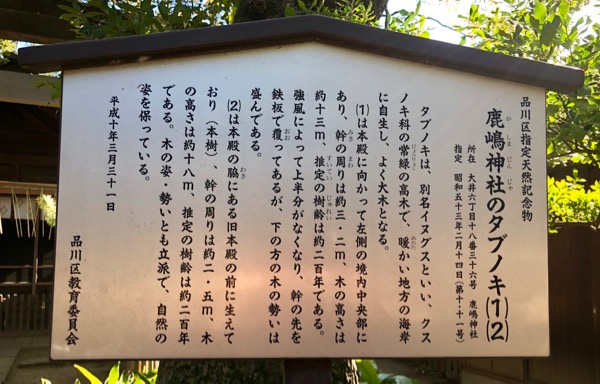 品川区指定天然記念物
鹿嶋神社のタブノキ(1)(2)
所在 大井六丁目十八番三十六号 鹿嶋神社
指定 昭和五十三年二月十四日(第十・十一号)
タブノキは、別名イヌグスといい、クス
ノキ科の常緑の高木で、暖かい地方の海岸
に自生し、よく大木となる。
(1)は本殿に向かって左側の境内中央部に
あり、幹の周りは約三・二m、木の高さは
約十三m、推定の樹齢は約二百年である。
強風によって上半分がなくなり、幹の先を
鉄板で覆ってあるが、下の方の木の勢いは
盛んである。
(2)は本殿の脇にある旧本殿の前に生えて
おり(本樹)、幹の周りは約二・五m、木
の高さは約十八m、推定の樹齢は約二百年
である。木の姿・勢いとも立派で、自然の
姿を保っている。
平成十年三月三十一日
品川区教育委員会